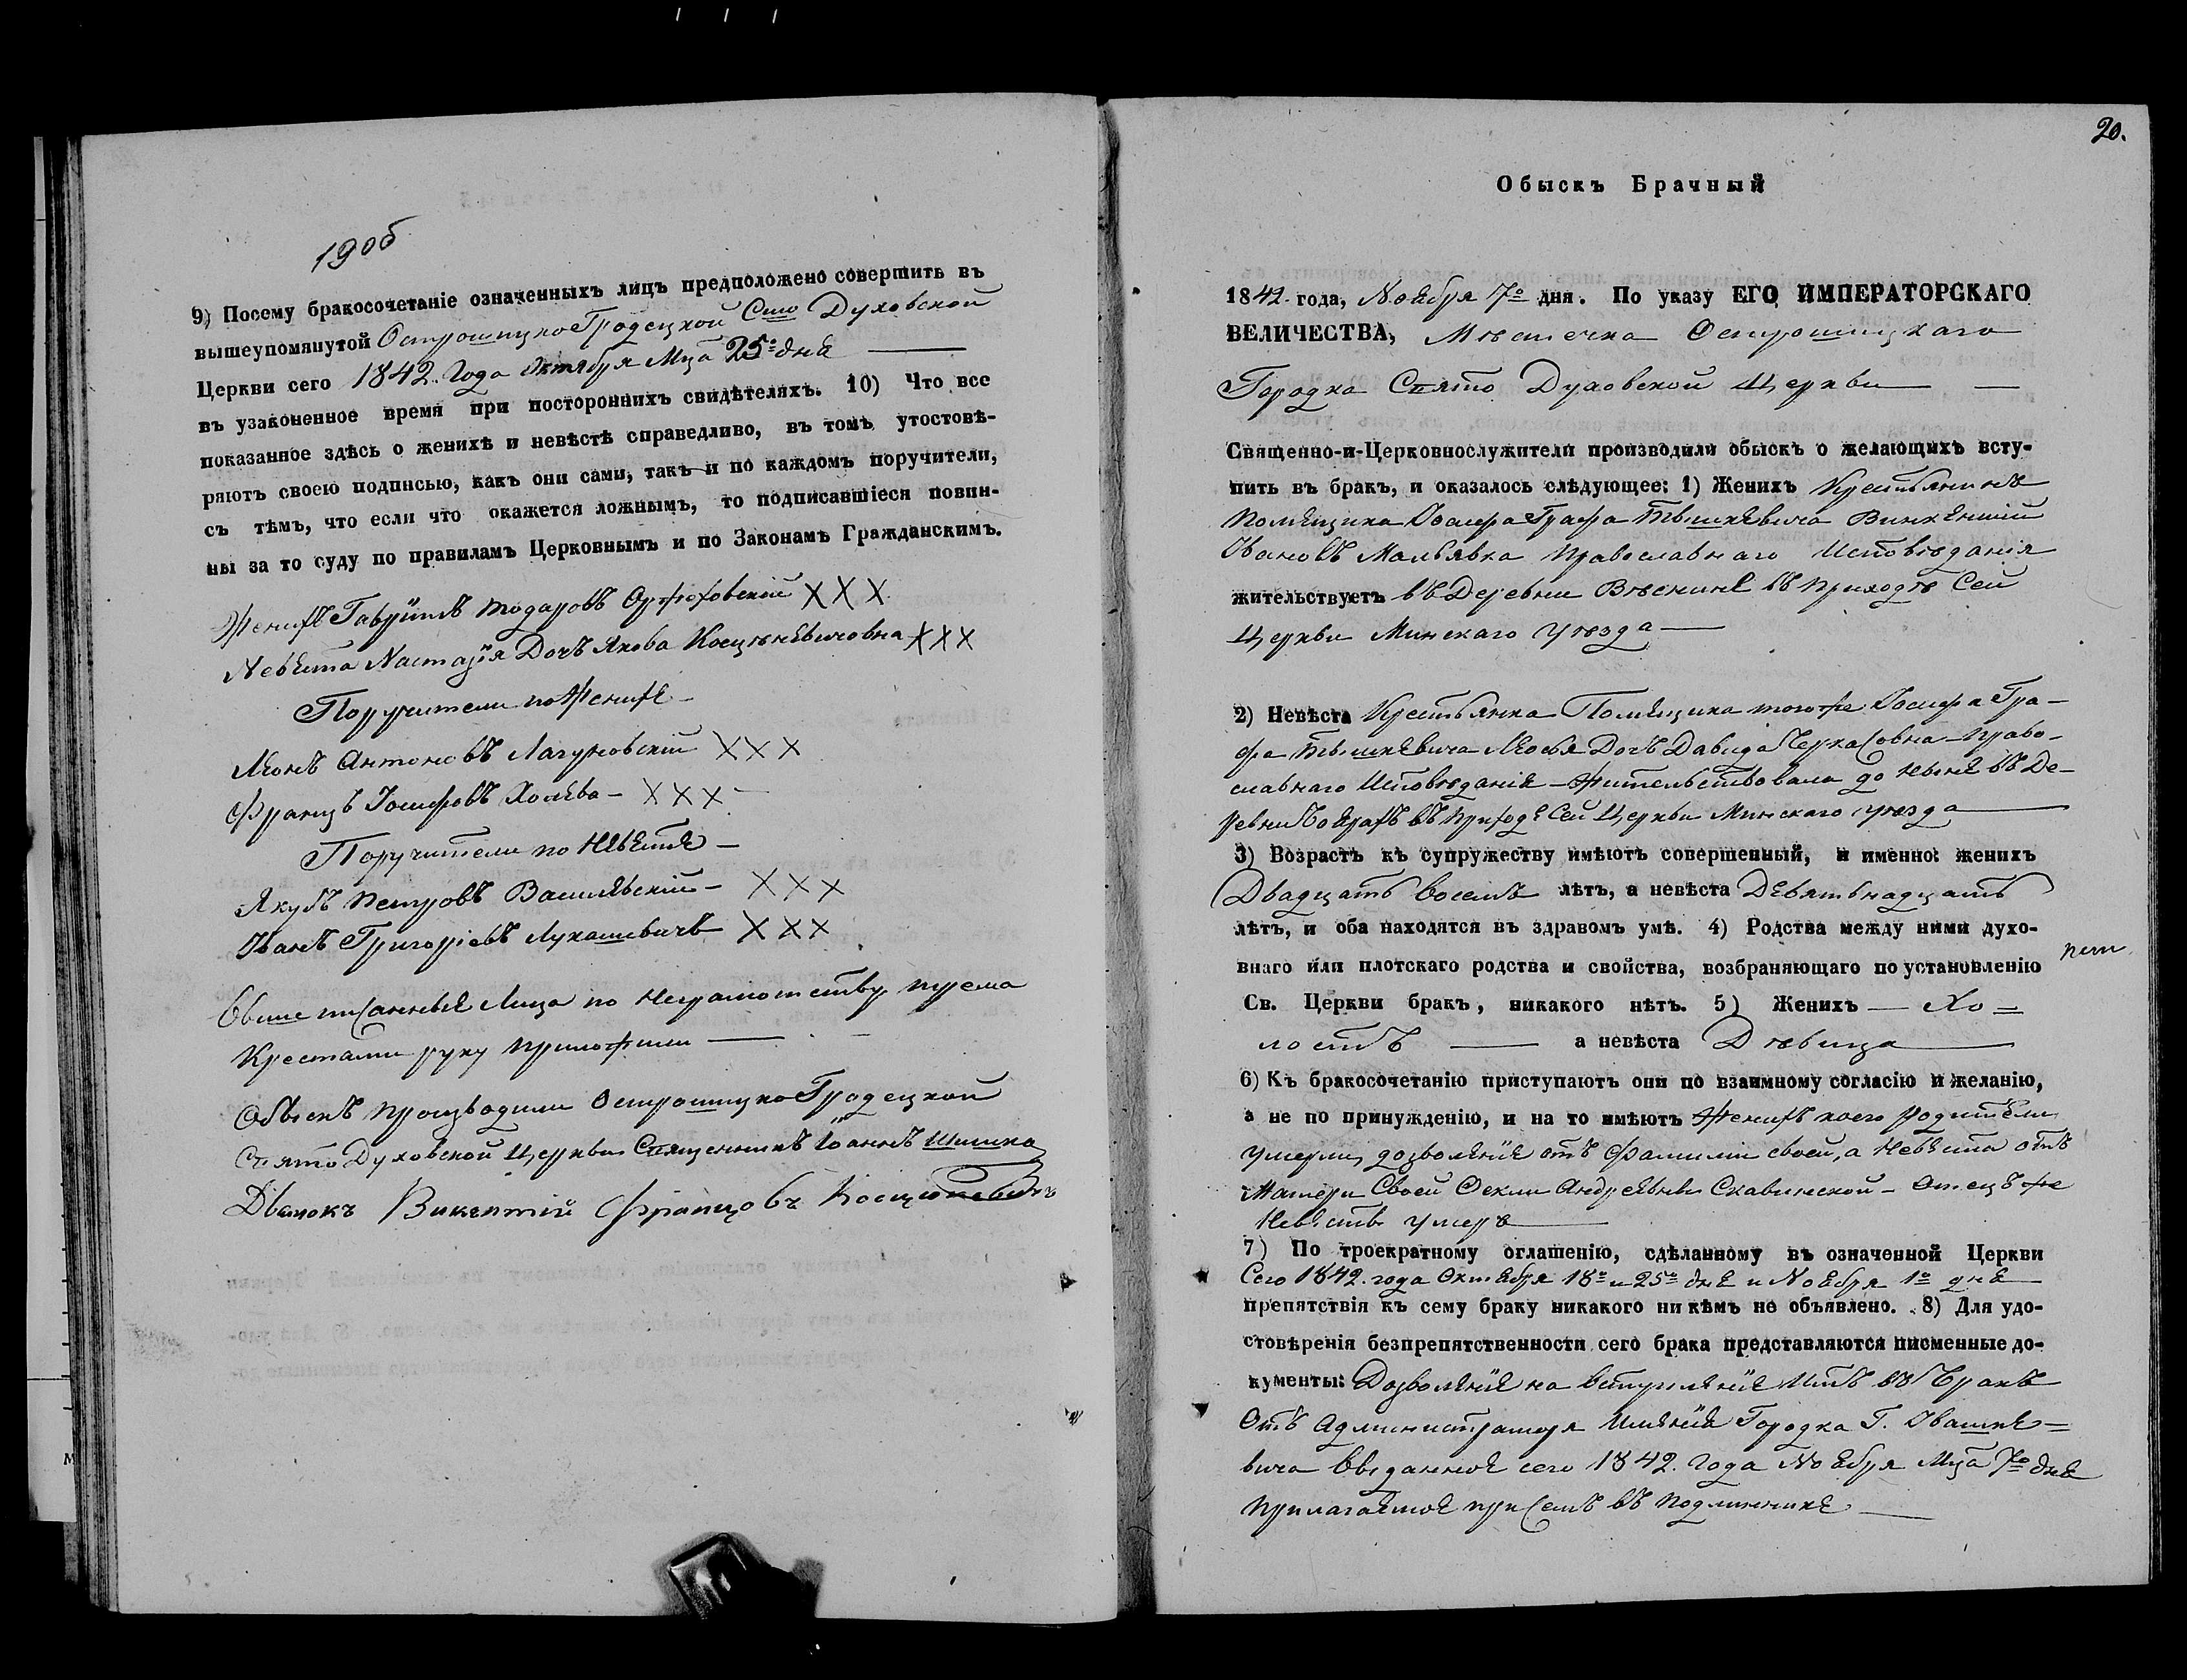 19об
9) Посему бракосочетаніе означенныхъ лицъ предположено совершить въ
вышеупомянутой Острошицко Градецкой Сто Духовской
Церкви сего 1842. Года Октября Мца 25º дня
въ узаконенное время при постороннихъ свидѣтеляхъ. 10) Что все
показанное здѣсь о женихѣ и невѣстѣ справедливо, въ томъ утостовѣ-
ряютъ своею подписью, какъ они сами, такъ и по каждомъ поручители,
съ тѣмъ, что если что окажется ложнымъ, то подписавшіеся повин-
ны за то суду по правиламъ Церковнымъ и по Законамъ Гражданскимъ.
Женихъ Гавріилъ Тодаровъ XXX
Невѣста Настазія Дочъ Якова XXX
Поручители по Женихе
Леонъ Антоновъ XXX
Францъ Іосифовъ Холева - XXX -
Поручители по Невѣсте -
Якубъ Петровъ Василевскій - XXX
Іванъ Григоріевъ Лукашевичъ XXX
Выше писанные Лица по Неграмотству трема
Крестами руку приложили
Обыскъ производили Острошицко Градецкой
Свято Духовской Церкви Священникъ Іоаннъ Шишка
Дьячокъ Викентій Францовъ
20.
Обыскъ Брачный
1842. года, Ноября 7º дня. По указу ЕГО ИМПЕРАТОРСКАГО
ВЕЛИЧЕСТВА, Мѣстечка Острошицкаго
Городка Свято Духовской Церкви
Священно-и-Церковнослужители производили обыскъ о желающихъ всту-
пить въ брак, и оказалось слѣдующее: 1) Женихъ Крестьянинъ
Помещика Іосифа Графа Тышкевича Винкентій
Івановъ Малявка Православнаго Исповѣданія
жительствуетъ въ Деревни Вѣснине въ приходѣ Сей
Церкви Минскаго уѣзда
2) Невѣста Крестьянка Помещика тогоже Іосифа Гра-
фа Тышкевича Дочъ Давида Черкасовна Право-
славнаго Исповѣданія - Жительствовала до ныне въ Де-
ревни Боярахъ въ приходе Сей Церкви Минскаго уѣзда
3) Возрастъ къ супружеству имѣютъ совершенный, и именно: женихъ
Двадцать восемъ лѣтъ, а невѣста Девятьнадцать
лѣтъ, и оба находятся въ здравомъ умѣ. 4) Родства между ними духо-
внаго или плотскаго родства и свойства, возбраняющаго по установленію
Св. Церкви бракъ, никакого нѣтъ. 5) Женихъ — Хо=
лостъ — а невѣста Дѣвица
6) Къ бракосочетанію приступаютъ они по взаимному согласію и желанію,
а не по принужденію, и на то имѣютъ Женихъ коего родители
умерли, дозволеніе отъ фамиліи своей, а Невѣста отъ
Матери Своей Феклы Андреевны Скавинской - Отецъ же
Невѣсты умеръ
7) По троекратному оглашенію, сдѣланному въ означенной Церкви
Сего 1842. года Октября 18º и 25º дне и Ноября 1º дне
препятствія къ сему браку никакого ни кѣмъ не объявлено. 8) Для удо-
стовѣренія безпрепятственности сего брака представляются писменные до-
кументы: Дозволеніе на вступленіе имъ въ бракъ
Отъ Администратора Имѣнія Городка Г. Івашке=
вича выданное сего 1842. года Ноября Мца 7º дня
прилагаемое при семъ въ подлиннике